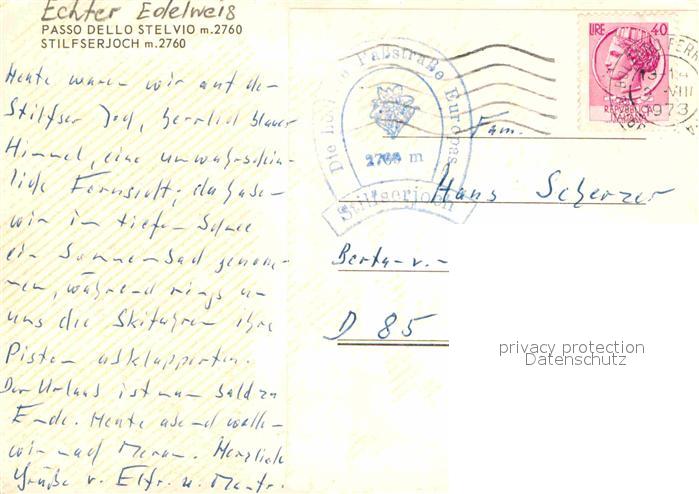 Echter Edelweiß
PASSO DELLO STELVIO m. 2760
STILFSERJOCH m. 2760
Heute waren wir auf dem
Stilfser Joch, herrlich blauer
Himmel, eine unwahrschein-
liche Fernsicht; da haben
wir im tiefen Schnee
ein Sonnenbad genom-
men, während rings um
uns die Skifahrer ihre
Pisten abklapperten.
Der Urlaub ist nun bald zu
Ende. Heute abend wollen
wir nach Meran. Herzliche
Grüße v. Elfr. u.
Die Paßstraße Europas
2760 m
Stilfserjoch
LIRE 40
REPVBBLICA
ITALIANA
VIII
1973
Fam.
Hans Scherzer
Berta-v.-
D 85
privacy protection
Datenschutz